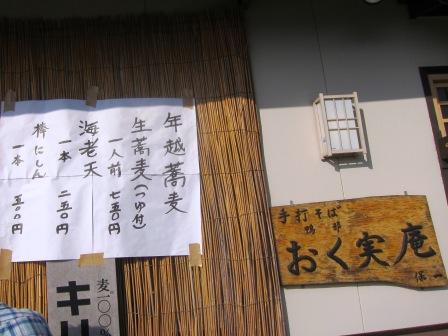 年越蕎麦
生蕎麦(つゆ付)
一人前 七五0円
海老天
一本 二五0円
棒にしん
一本 五00円
麦一〇〇
キリ
手打そば
おく実庵